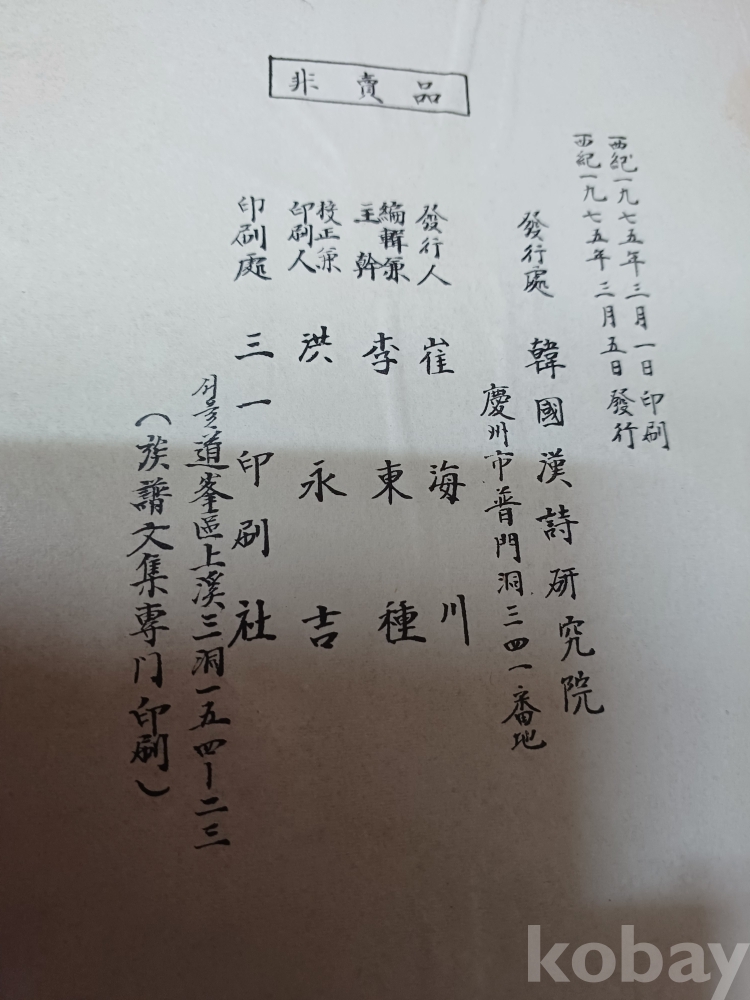 非賣品
西紀一九七五年三月一日印刷
西紀一九七五年三月五日發行
發行處 韓國漢詩硏究院
慶州市普門洞三四一番地
發行人 崔海川
編輯兼主幹 李東種
校正兼印刷人 洪永吉
印刷處 三一印刷社
서울道峯區上溪三洞一五四-二三
(族譜文集專门印刷)
kobay